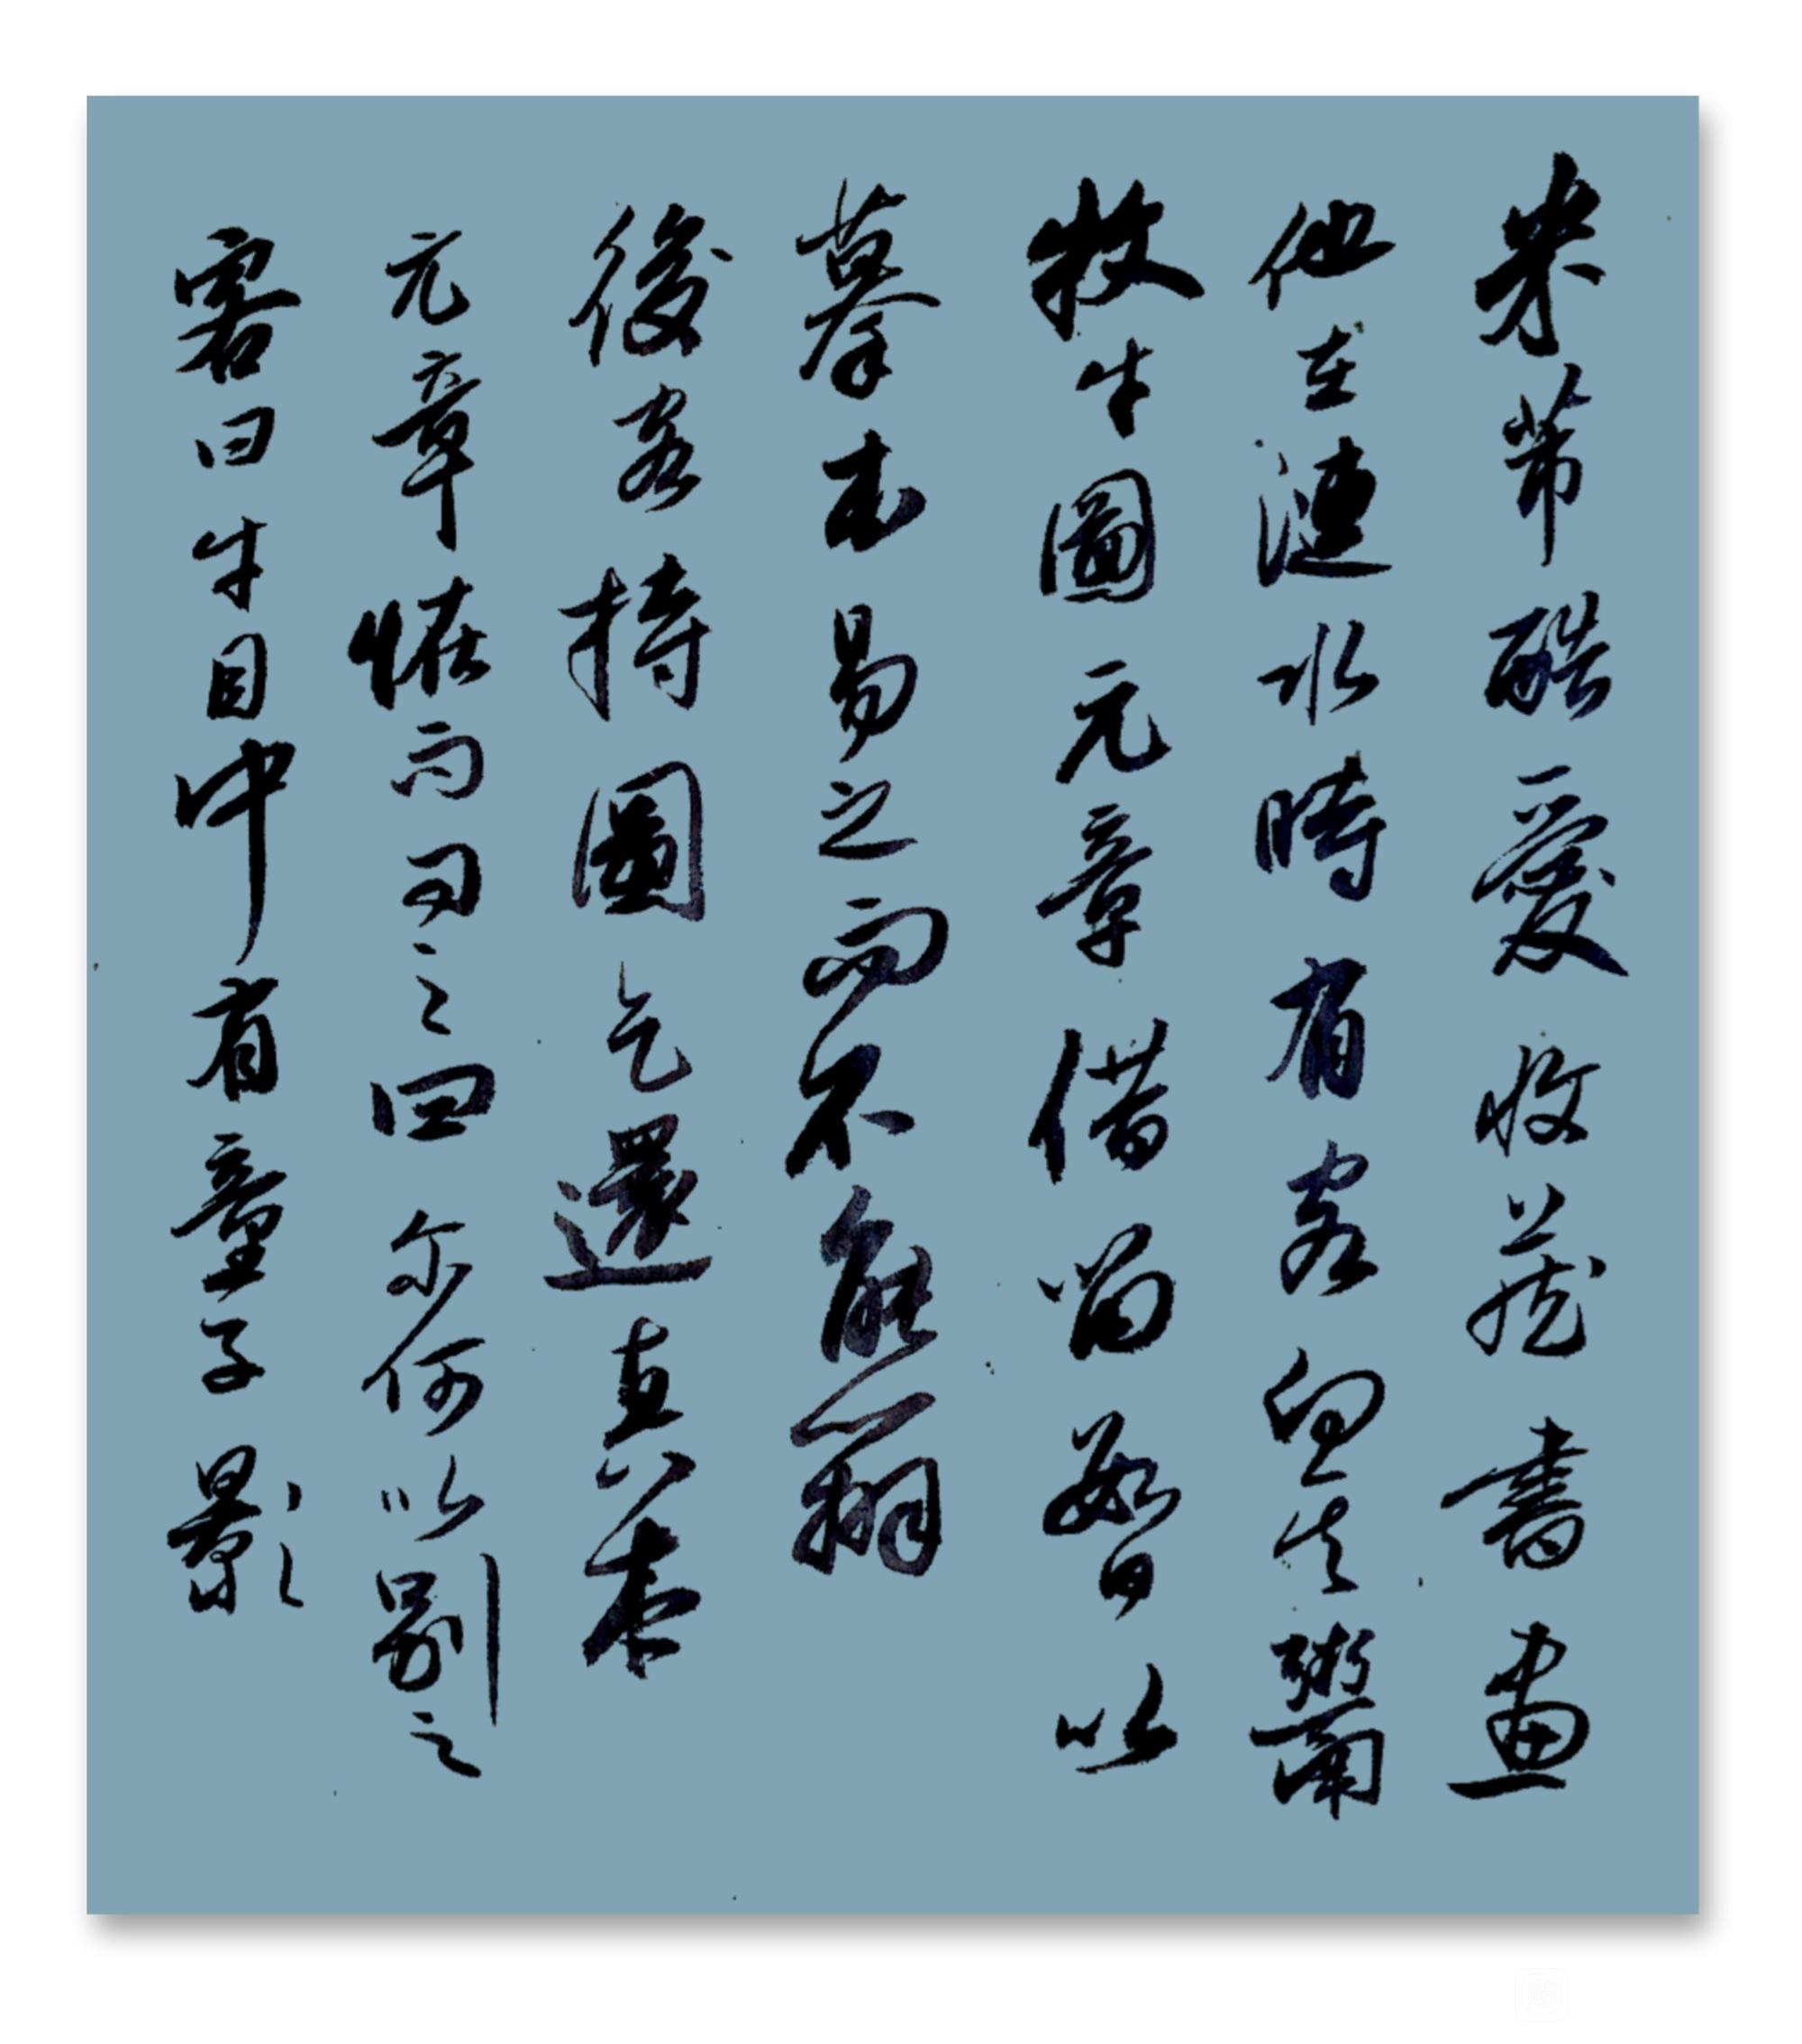 米芾酷愛收藏書畫
他在漣水時有客向其鬻
牧牛圖元章借留數日以
摹本易之而不能辨
後客持圖乞還真本
元章怪而問之曰尔何以別之
客曰牛目中有童子影